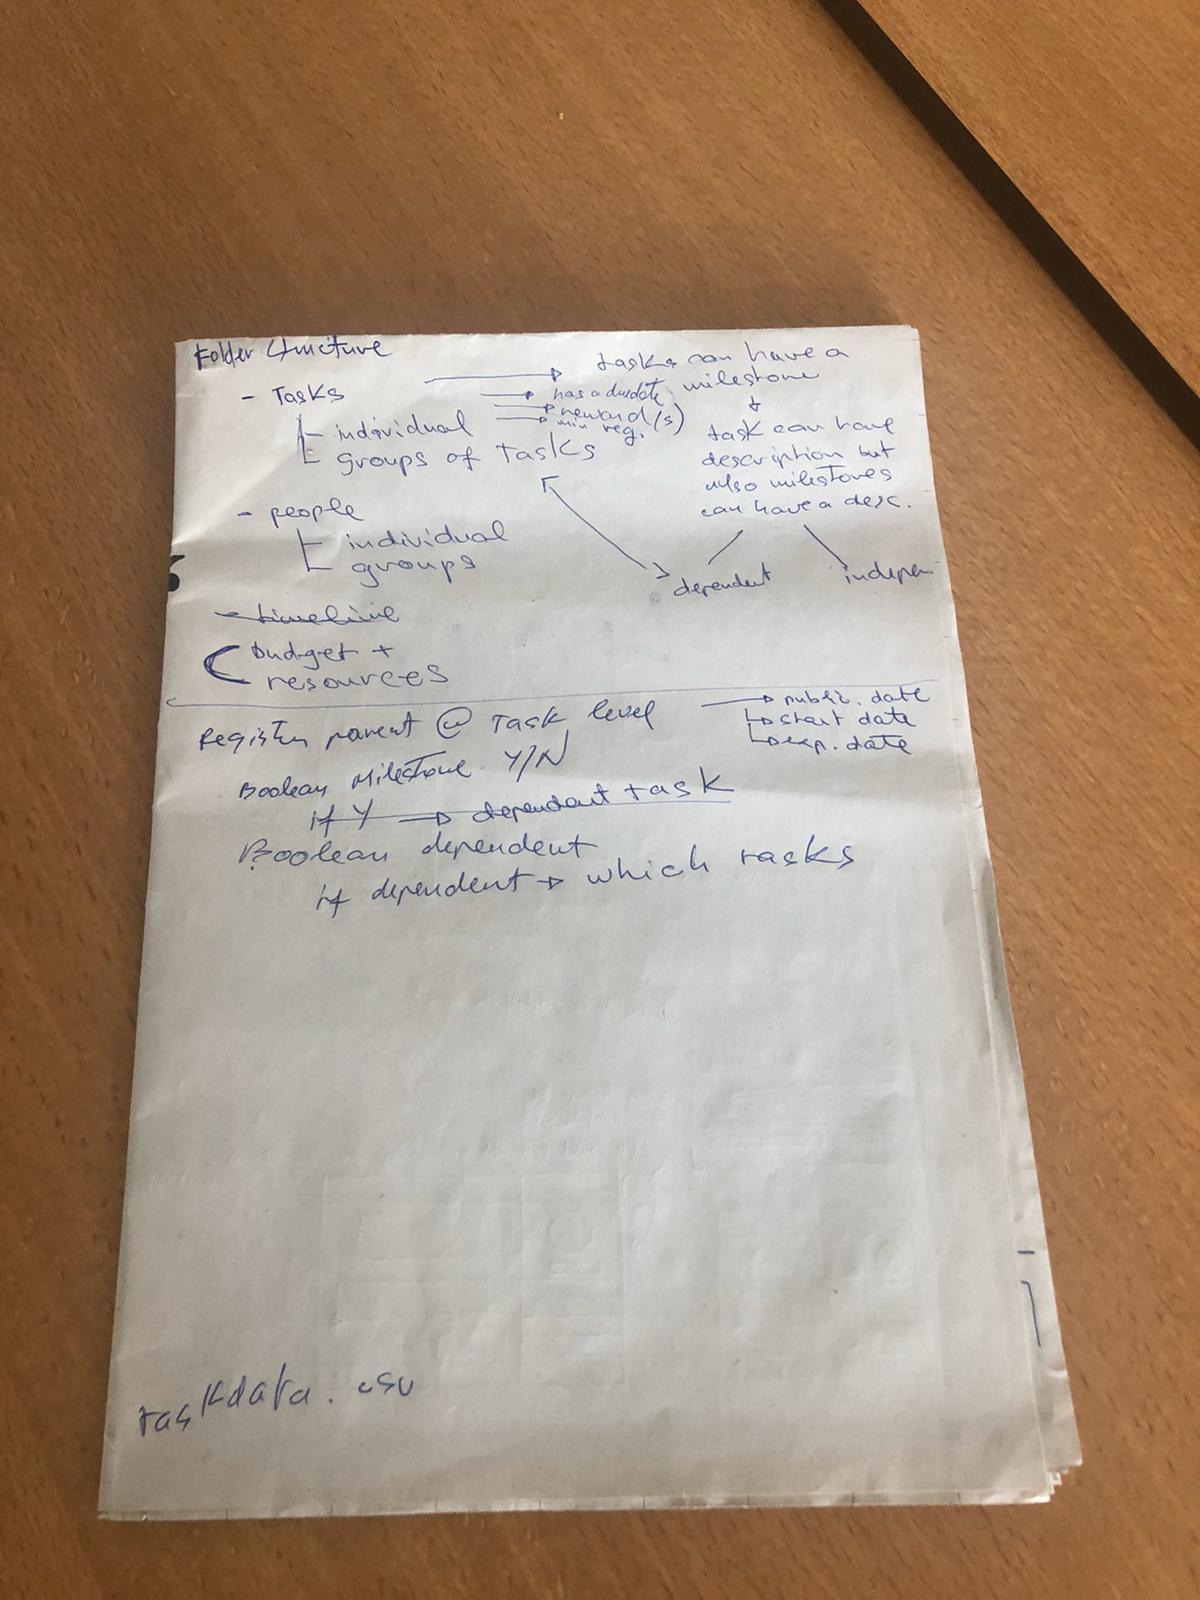 Folder Structure
- Tasks
individual
groups of Tasks
tasks can have a
milestone
has a duedate
reward(s)
min req.
task can have
description but
also milestones
can have a desc.
dependent
indepen.
- people
individual
groups
- timeline
budget +
resources
Register parent @ Task level
public. date
start date
exp. date
Boolean Milestone Y/N
if Y → dependent task
Boolean dependent
if dependent → which tasks
taskdata.csv